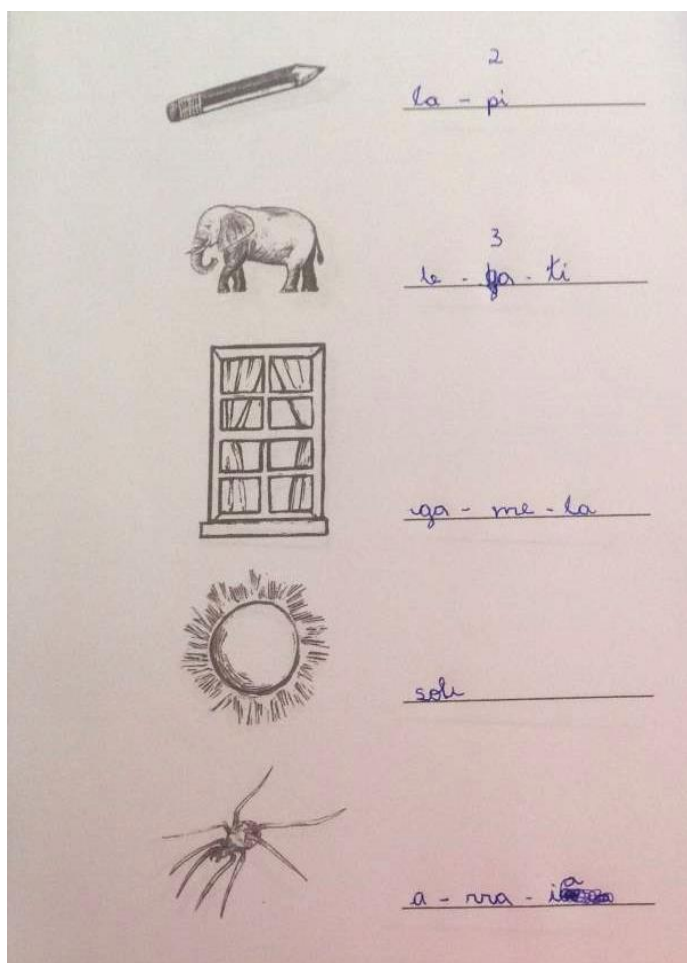 2
la - pi
3
le - fa - ti
ga - me - la
sole
a - rra - ia